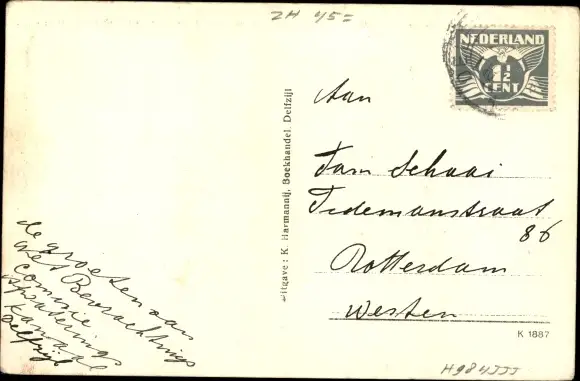 ZH 45=
NEDERLAND
1½
CENT
Aan
Fam Schaai
Tidemanstraat
86
Rotterdam
Westen
K 1887
H984JJJ
Uitgave: K. Harmannij, Boekhandel, Delfzijl
de groeten van
het Bevrachtings
Commie
Spaterings
Kanaal
Delfzijl